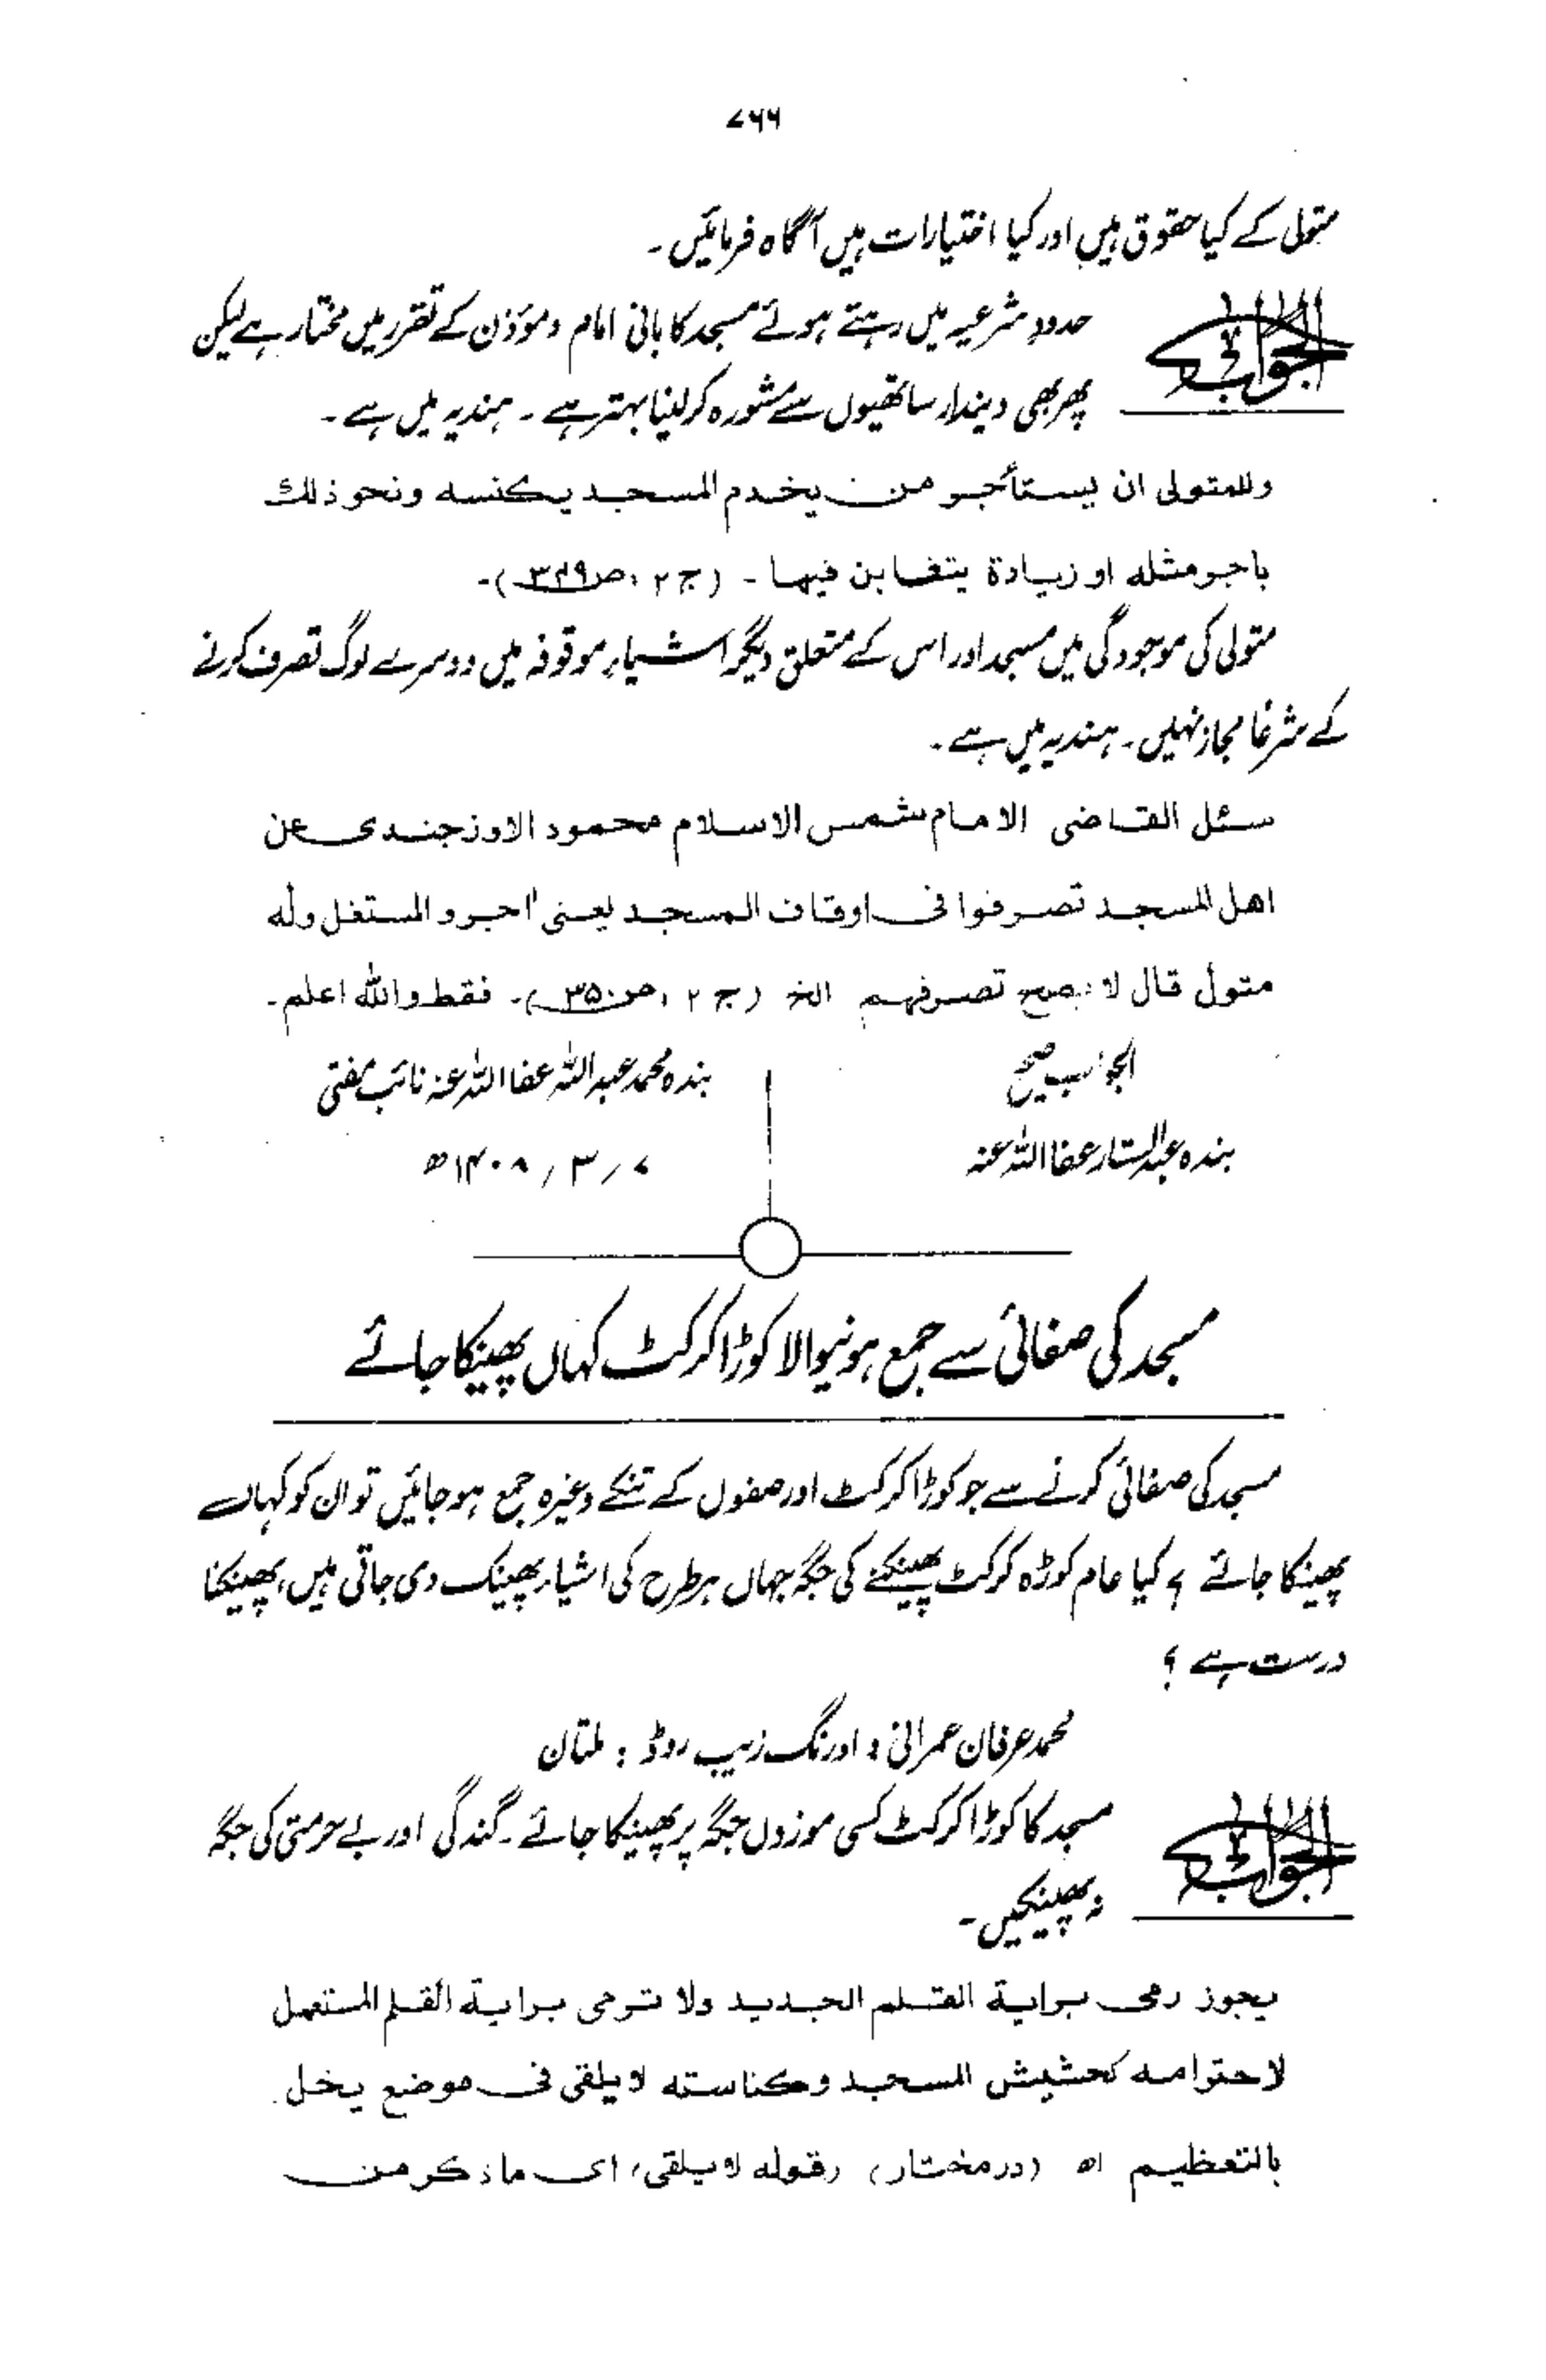 ۷۶۶
متولی کے کیا حقوق ہیں اور کیا اختیارات ہیں آگاہ فرمائیں۔
الجواب
حدود شرعیہ میں رہتے ہوئے مسجد کا بانی امام و مؤذن کے تقرر میں مختار ہے لیکن
پھر بھی دیندار ساتھیوں سے مشورہ کر لینا بہتر ہے۔ ہندیہ میں ہے۔
وللمتولی ان یستأجر من یخدم المسجد یکنسه ونحو ذلك
باجر مثله او زیادة یتغابن فیها۔ (ج ۲، ص۳۴۹)۔
متولی کی موجودگی میں مسجد اور اس کے متعلق دیگر اشیاء موقوفہ میں دوسرے لوگ تصرف کرنے
کے شرعًا مجاز نہیں۔ ہندیہ میں ہے۔
سئل القاضی الامام شمس الاسلام محمود الاوزجندی عن
اهل المسجد تصرفوا فی اوقاف المسجد یعنی اجروا المستغل وله
متول قال لا یصح تصرفهم الخ (ج ۲، ص۳۵۰)۔ فقط واللہ اعلم۔
الجواب صحیح
بندہ عبدالستار عفا اللہ عنہ
بندہ محمد عبداللہ عفا اللہ عنہ نائب مفتی
۷ / ۳ / ۱۴۰۸ھ
مسجد کی صفائی سے جمع ہونیوالا کوڑا کرکٹ کہاں پھینکا جائے
مسجد کی صفائی کرنے سے جو کوڑا کرکٹ اور صفوں کے تنکے وغیرہ جمع ہو جائیں تو ان کو کہاں
پھینکا جائے ؟ کیا عام کوڑہ کرکٹ پھینکنے کی جگہ جہاں ہر طرح کی اشیاء پھینک دی جاتی ہیں، پھینکنا
درست ہے ؟
محمد عرفان عمرانی : اورنگ زیب روڈ : ملتان
الجواب
مسجد کا کوڑا کرکٹ کسی موزوں جگہ پر پھینکا جائے۔ گندگی اور بے حرمتی کی جگہ
نہ پھینکیں۔
یجوز رمی برایة القلم الجدید ولا ترمی برایة القلم المستعمل
لاحترامه کحشیش المسجد وکناسته لا یلقی فی موضع یخل
بالتعظیم اھ (درمختار) (قوله لا یلقی) ای ما ذکر من